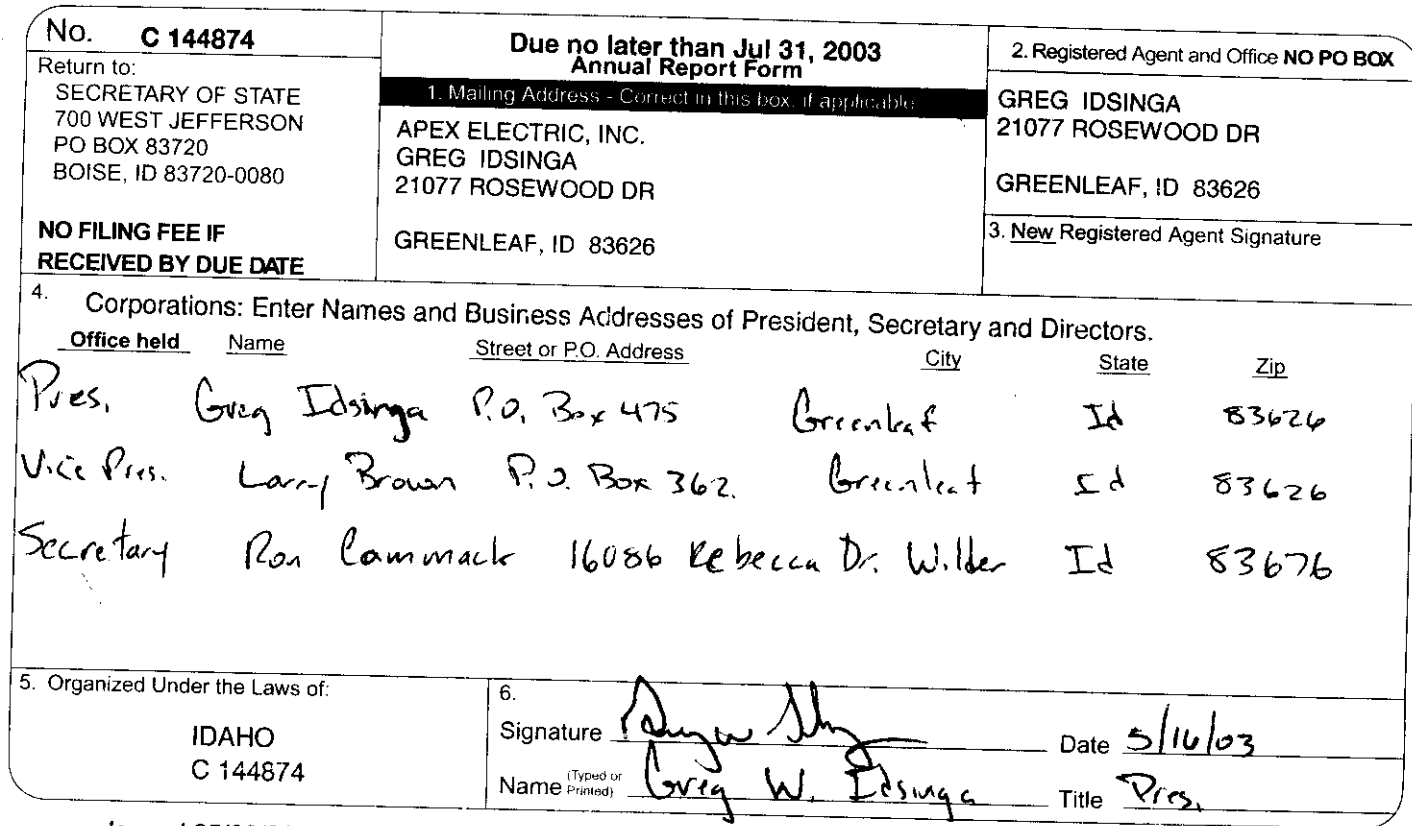 No. C 144874
Return to:
SECRETARY OF STATE
700 WEST JEFFERSON
PO BOX 83720
BOISE, ID 83720-0080
NO FILING FEE IF
RECEIVED BY DUE DATE
Due no later than Jul 31, 2003
Annual Report Form
1. Mailing Address - Correct in this box, if applicable
APEX ELECTRIC, INC.
GREG IDSINGA
21077 ROSEWOOD DR
GREENLEAF, ID 83626
2. Registered Agent and Office NO PO BOX
GREG IDSINGA
21077 ROSEWOOD DR
GREENLEAF, ID 83626
3. New Registered Agent Signature
4. Corporations: Enter Names and Business Addresses of President, Secretary and Directors.
Office held Name Street or P.O. Address City State Zip
Pres. Greg Idsinga P.O. Box 475 Greenleaf Id 83626
Vice Pres. Larry Brown P.O. Box 362. Greenleaf Id 83626
Secretary Ron Cammack 16086 Rebecca Dr. Wilder Id 83676
5. Organized Under the Laws of:
IDAHO
C 144874
6.
Signature Date 5/16/03
Name (Typed or Printed) Greg W. Idsinga Title Pres.